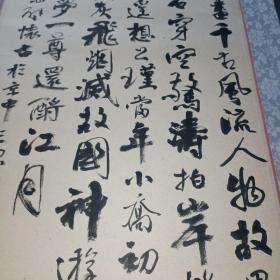 盡千古風流人物故
石穿空驚濤拍岸
遥想公瑾當年小喬初
灰飛烟滅故國神遊
一尊還酹江月
懷古於京中